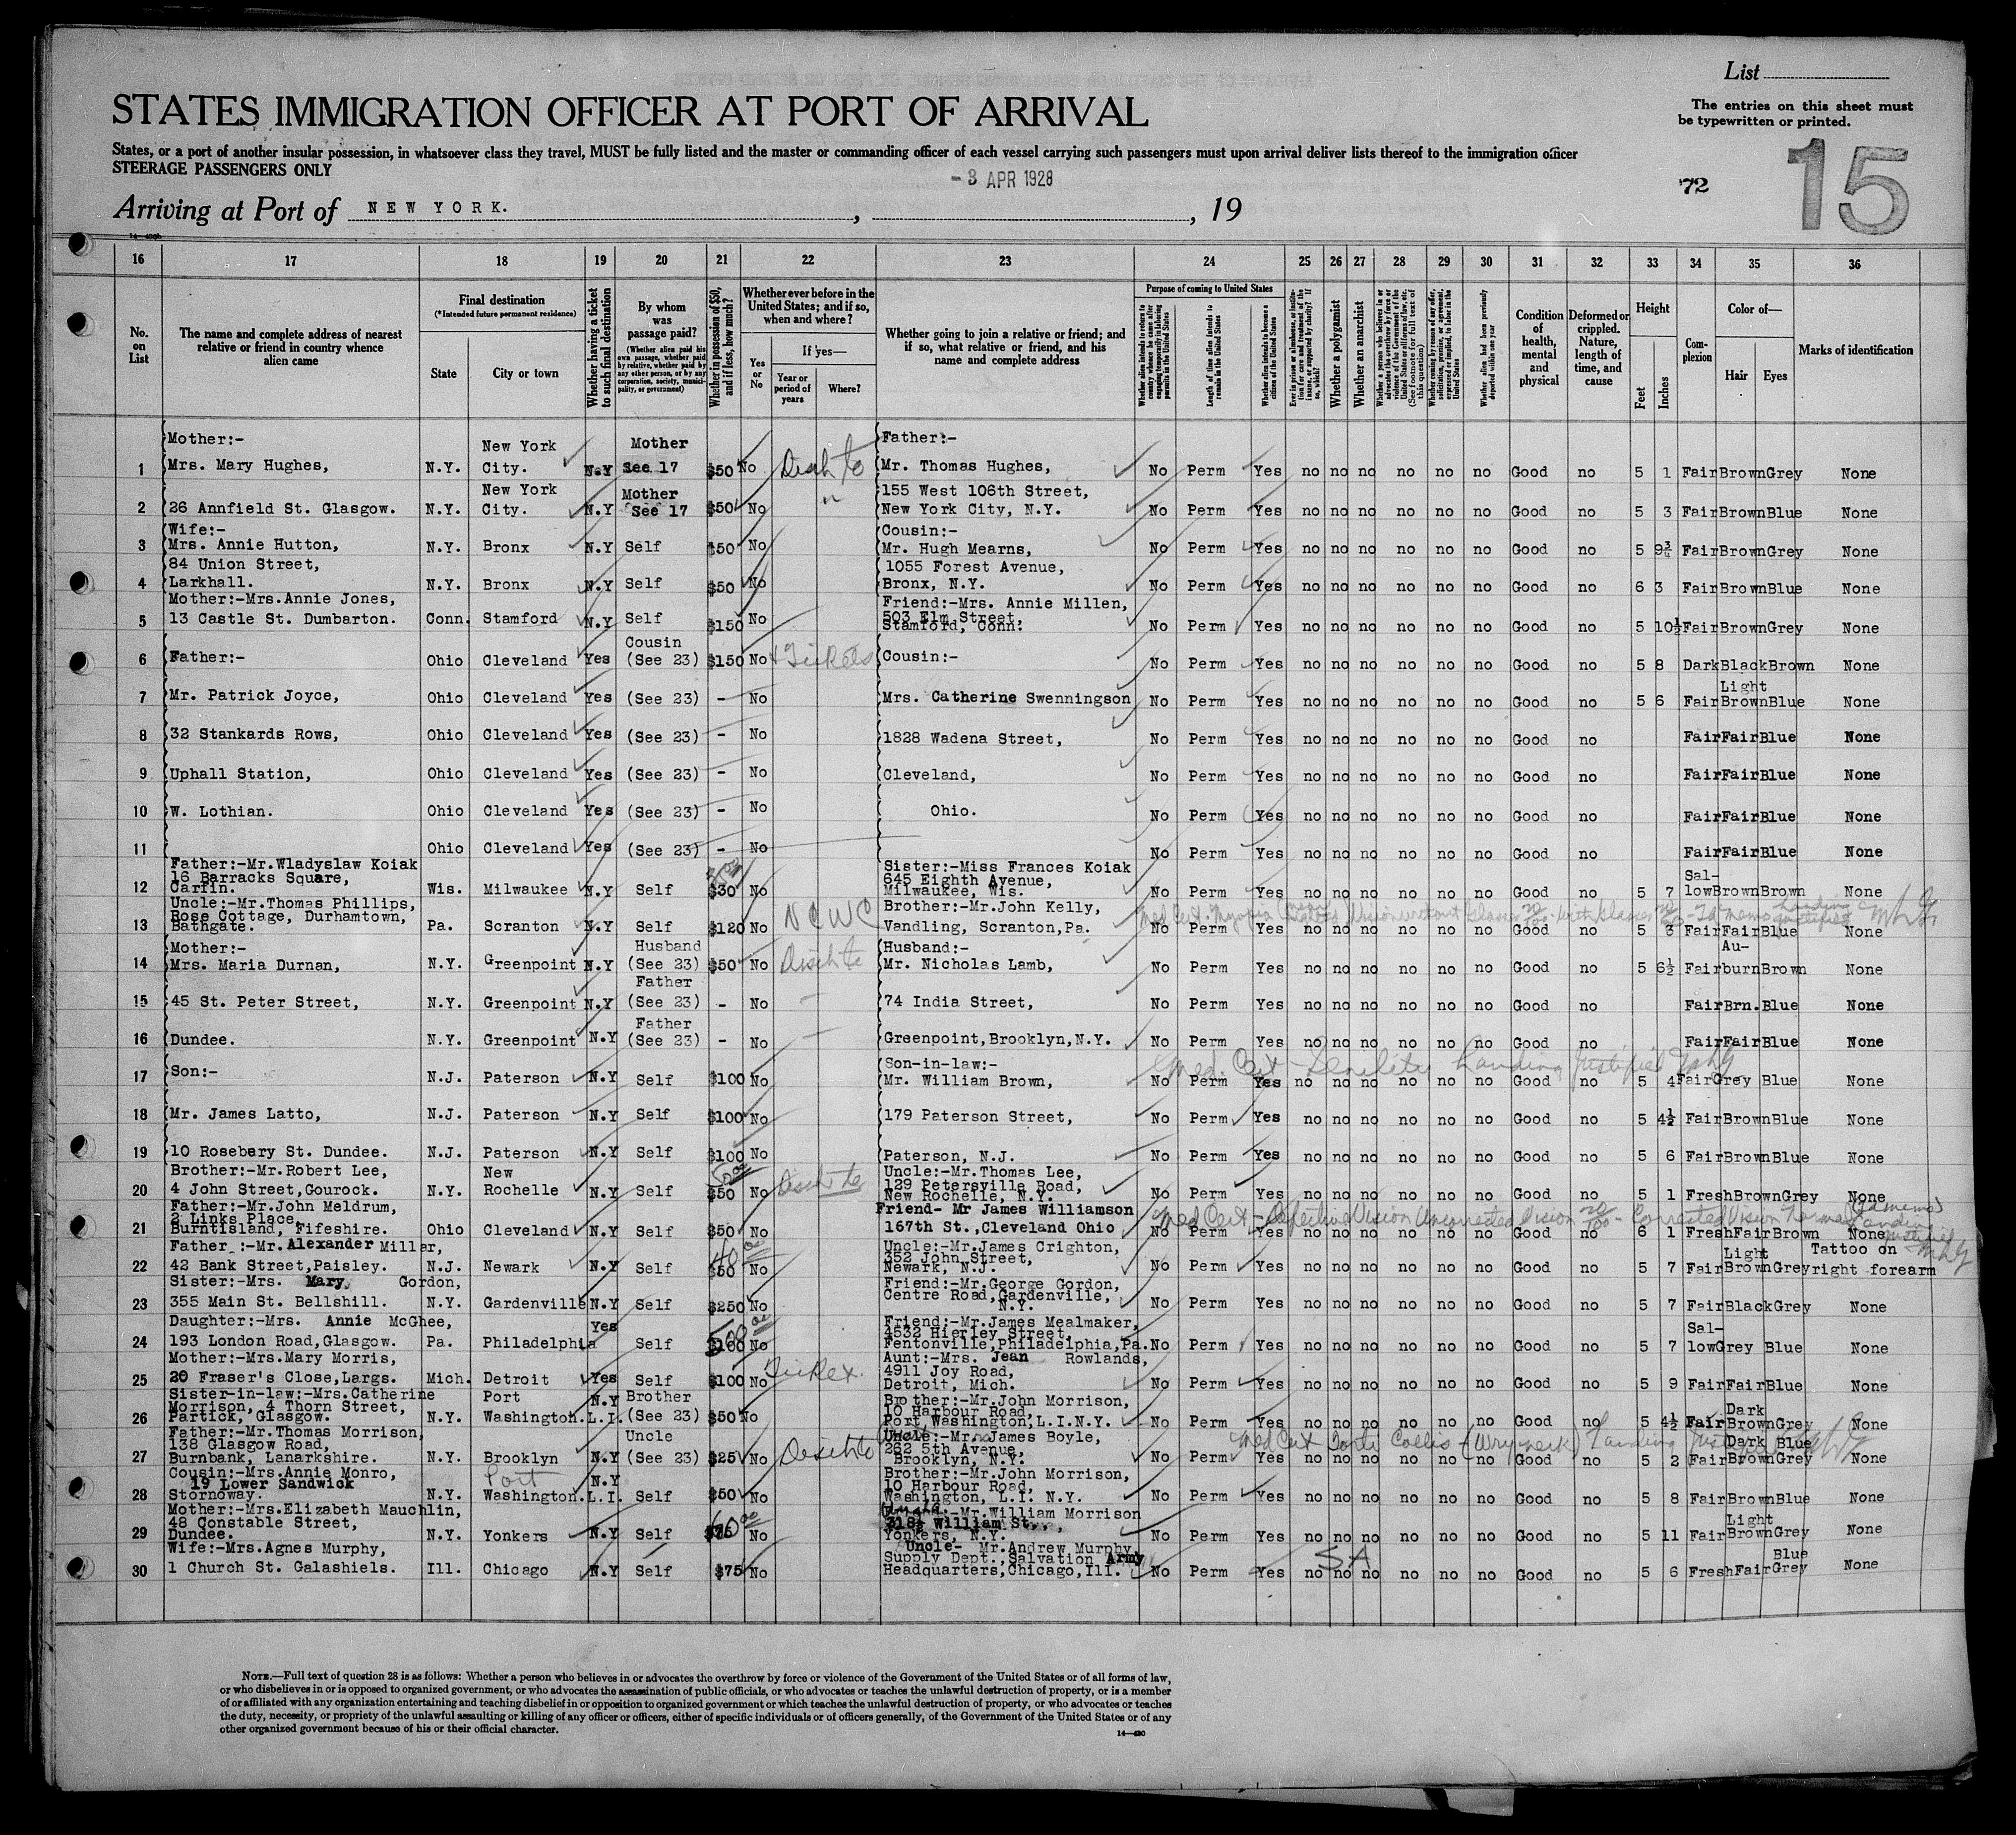 List
The entries on this sheet must
be typewritten or printed.
STATES IMMIGRATION OFFICER AT PORT OF ARRIVAL
States, or a port of another insular possession, in whatsoever class they travel, MUST be fully listed and the master or commanding officer of each vessel carrying such passengers must upon arrival deliver lists thereof to the immigration officer
STEERAGE PASSENGERS ONLY
- 3 APR 1928
72
15
Arriving at Port of NEW YORK. , , 19
16 17 18 19 20 21 22 23 24 25 26 27 28 29 30 31 32 33 34 35 36
No. on List
The name and complete address of nearest relative or friend in country whence alien came
Final destination
(*Intended future permanent residence)
State
City or town
Whether having a ticket to such final destination
By whom was passage paid?
(Whether alien paid his own passage, whether paid by relative, whether paid by any other person, or by any corporation, society, municipality, or government)
Whether in possession of $50, and if less, how much?
Whether ever before in the United States; and if so, when and where?
Yes or No
If yes—
Year or period of years
Where?
Whether going to join a relative or friend; and if so, what relative or friend, and his name and complete address
Purpose of coming to United States
Length of time alien intends to remain in the United States
Whether alien intends to become a citizen of the United States
Whether a polygamist
Whether an anarchist
Condition of health, mental and physical
Deformed or crippled. Nature, length of time, and cause
Height
Feet
Inches
Complexion
Color of—
Hair
Eyes
Marks of identification
1 Mother:- Mrs. Mary Hughes, N.Y. New York City. N.Y Mother See 17 $50 No Father:- Mr. Thomas Hughes, No Perm Yes no no no no no no Good no 5 1 Fair Brown Grey None
2 26 Annfield St. Glasgow. N.Y. New York City. N.Y Mother See 17 $50 No 155 West 106th Street, New York City, N.Y. No Perm Yes no no no no no no Good no 5 3 Fair Brown Blue None
3 Wife:- Mrs. Annie Hutton, N.Y. Bronx N.Y Self $50 No Cousin:- Mr. Hugh Mearns, No Perm Yes no no no no no no Good no 5 9¾ Fair Brown Grey None
4 84 Union Street, Larkhall. N.Y. Bronx N.Y Self $50 No 1055 Forest Avenue, Bronx, N.Y. No Perm Yes no no no no no no Good no 6 3 Fair Brown Blue None
5 Mother:-Mrs.Annie Jones, 13 Castle St. Dumbarton. Conn. Stamford N.Y Self $150 No Friend:-Mrs. Annie Millen, 503 Elm Street, Stamford, Conn: No Perm Yes no no no no no no Good no 5 10½ Fair Brown Grey None
6 Father:- Ohio Cleveland Yes Cousin (See 23) $150 No + Tickets Cousin:- No Perm Yes no no no no no no Good no 5 8 Dark Black Brown None
7 Mr. Patrick Joyce, Ohio Cleveland Yes (See 23) - No Mrs. Catherine Swenningson No Perm Yes no no no no no no Good no 5 6 Fair Light Brown Blue None
8 32 Stankards Rows, Ohio Cleveland Yes (See 23) - No 1828 Wadena Street, No Perm Yes no no no no no no Good no Fair Fair Blue None
9 Uphall Station, Ohio Cleveland Yes (See 23) - No Cleveland, No Perm Yes no no no no no no Good no Fair Fair Blue None
10 W. Lothian. Ohio Cleveland Yes (See 23) - No Ohio. No Perm Yes no no no no no no Good no Fair Fair Blue None
11 Ohio Cleveland Yes (See 23) - No No Perm Yes no no no no no no Good no Fair Fair Blue None
12 Father:-Mr.Wladyslaw Koiak 16 Barracks Square, Carfin. Wis. Milwaukee N.Y Self $30 No Sister:-Miss Frances Koiak 645 Eighth Avenue, Milwaukee, Wis. No Perm Yes no no no no no no Good no 5 7 Sal-low Brown Brown None
13 Uncle:-Mr.Thomas Phillips, Rose Cottage, Durhamtown, Bathgate. Pa. Scranton N.Y Self $120 No NCWC Brother:-Mr.John Kelly, Vandling, Scranton,Pa. No Perm Yes no no no no no no Good no 5 3 Fair Fair Blue None
14 Mother:- Mrs. Maria Durnan, N.Y. Greenpoint N.Y Husband (See 23) $50 No Husband:- Mr. Nicholas Lamb, No Perm Yes no no no no no no Good no 5 6½ Fair Au-burn Brown None
15 45 St. Peter Street, N.Y. Greenpoint N.Y Father (See 23) - No 74 India Street, No Perm Yes no no no no no no Good no Fair Brn. Blue None
16 Dundee. N.Y. Greenpoint N.Y Father (See 23) - No Greenpoint,Brooklyn,N.Y. No Perm Yes no no no no no no Good no Fair Fair Blue None
Med. Cert - Senility Landing justified
17 Son:- N.J. Paterson N.Y Self $100 No Son-in-law:- Mr. William Brown, No Perm Yes no no no no no no Good no 5 4 Fair Grey Blue None
18 Mr. James Latto, N.J. Paterson N.Y Self $100 No 179 Paterson Street, No Perm Yes no no no no no no Good no 5 4½ Fair Brown Blue None
19 10 Rosebery St. Dundee. N.J. Paterson N.Y Self $100 No Paterson, N.J. No Perm Yes no no no no no no Good no 5 6 Fair Brown Blue None
20 Brother:-Mr.Robert Lee, 4 John Street,Gourock. N.Y. New Rochelle N.Y Self $50 No Uncle:-Mr.Thomas Lee, 129 Petersville Road, New Rochelle, N.Y. No Perm Yes no no no no no no Good no 5 1 Fresh Brown Grey None
Med Cert - Defective Vision Uncorrected Vision
21 Father:-Mr.John Meldrum, 2 Links Place, Burntisland, Fifeshire. Ohio Cleveland N.Y Self $50 No Friend- Mr James Williamson 167th St.,Cleveland Ohio No Perm Yes no no no no no no Good no 6 1 Fresh Fair Brown None
22 Father :-Mr. Alexander Miller, 42 Bank Street,Paisley. N.J. Newark N.Y Self $50 No Uncle:-Mr.James Crighton, 352 John Street, Newark, N.J. No Perm Yes no no no no no no Good no 5 7 Fair Light Brown Grey Tattoo on right forearm
23 Sister:-Mrs. Mary Gordon, 355 Main St. Bellshill. N.Y. Gardenville N.Y Self $250 No Friend:-Mr.George Gordon, Centre Road,Gardenville, N.Y. No Perm Yes no no no no no no Good no 5 7 Fair Black Grey None
24 Daughter:-Mrs. Annie McGhee, 193 London Road,Glasgow. Pa. Philadelphia Yes Self $100 No Friend:-Mr.James Mealmaker, 4532 Hierley Street, Fentonville,Philadelphia,Pa. No Perm Yes no no no no no no Good no 5 7 Sal-low Grey Blue None
25 Mother:-Mrs.Mary Morris, 20 Fraser's Close,Largs. Mich. Detroit Yes Self $100 No Aunt:-Mrs. Jean Rowlands, 4911 Joy Road, Detroit, Mich. No Perm Yes no no no no no no Good no 5 9 Fair Fair Blue None
26 Sister-in-law:-Mrs.Catherine Morrison, 4 Thorn Street, Partick, Glasgow. N.Y. Port Washington. N.Y L.I. Brother (See 23) $50 No Brother:-Mr.John Morrison, 10 Harbour Road, Port Washington,L.I.N.Y. No Perm Yes no no no no no no Good no 5 4½ Fair Dark Brown Grey None
Med Cert Torti Collis - (Wry neck) Landing
27 Father:-Mr.Thomas Morrison, 138 Glasgow Road, Burnbank, Lanarkshire. N.Y. Brooklyn N.Y Uncle (See 23) $25 No Uncle:-Mr. James Boyle, 262 5th Avenue, Brooklyn, N.Y. No Perm Yes no no no no no no Good no 5 2 Fair Dark Brown Blue Grey None
28 Cousin:-Mrs.Annie Monro, 19 Lower Sandwick Stornoway. N.Y. Port Washington. N.Y L.I. Self $50 No Brother:-Mr.John Morrison, 10 Harbour Road, Washington, L.I. N.Y. No Perm Yes no no no no no no Good no 5 8 Fair Brown Blue None
29 Mother:-Mrs.Elizabeth Mauchlin, 48 Constable Street, Dundee. N.Y. Yonkers N.Y Self No Mr.William Morrison 318½ William St., Yonkers, N.Y. No Perm Yes no no no no no no Good no 5 11 Fair Light Brown Grey None
SA
30 Wife:-Mrs.Agnes Murphy, 1 Church St. Galashiels. Ill. Chicago N.Y Self $75 No Uncle- Mr.Andrew Murphy Supply Dept.,Salvation Army Headquarters,Chicago,Ill. No Perm Yes no no no no no no Good no 5 6 Fresh Fair Blue Grey None
NOTE.—Full text of question 28 is as follows: Whether a person who believes in or advocates the overthrow by force or violence of the Government of the United States or of all forms of law,
or who disbelieves in or is opposed to organized government, or who advocates the assassination of public officials, or who advocates or teaches the unlawful destruction of property, or is a member
of or affiliated with any organization entertaining and teaching disbelief in or opposition to organized government or which teaches the unlawful destruction of property, or who advocates or teaches
the duty, necessity, or propriety of the unlawful assaulting or killing of any officer or officers, either of specific individuals or of officers generally, of the Government of the United States or of any
other organized government because of his or their official character.
14—430